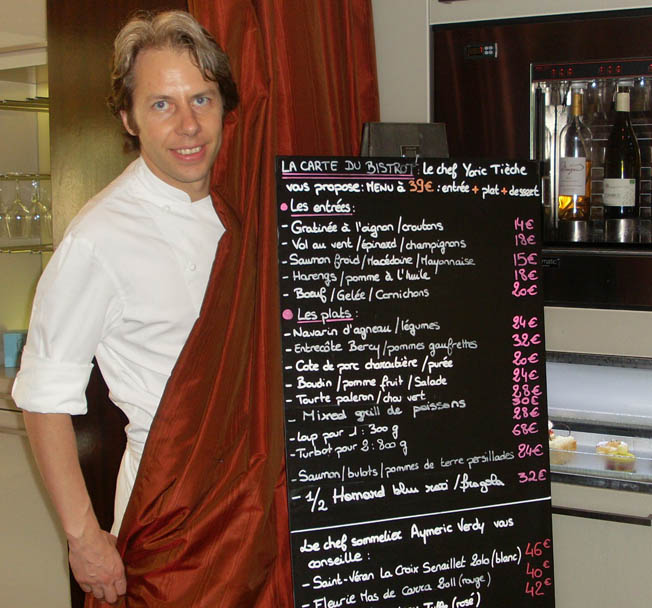 LA CARTE DU BISTROT: Le chef Yoric Tièche
vous propose: MENU à 39€: entrée + plat + dessert
Les entrées:
- Gratinée à l'oignon/croutons 14€
- Vol au vent/épinard/champignons 18€
- Saumon froid/Macédoine/Mayonnaise 15€
- Harengs/pomme à l'huile 18€
- Bœuf/Gelée/Cornichons 20€
Les plats:
- Navarin d'agneau/légumes 24€
- Entrecôte Bercy/pommes gaufrettes 32€
- Cote de porc charcutière/purée 20€
- Boudin/pomme fruit/Salade 24€
- Tourte paleron/chou vert 28€
- Mixed grill de poissons 30€
- Loup pour 1: 300 g 28€
- Turbot pour 2: 800 g 68€
- Saumon/bulots/pommes de terre persillades 24€
- 1/2 Homard bleu /fregola 32€
Le chef sommelier Aymeric Verdy vous
conseille:
- Saint-Véran La Croix Senaillet 2010 (blanc) 46€
- Fleurie Mas de 2011 (rouge) 40€
(rosé) 42€